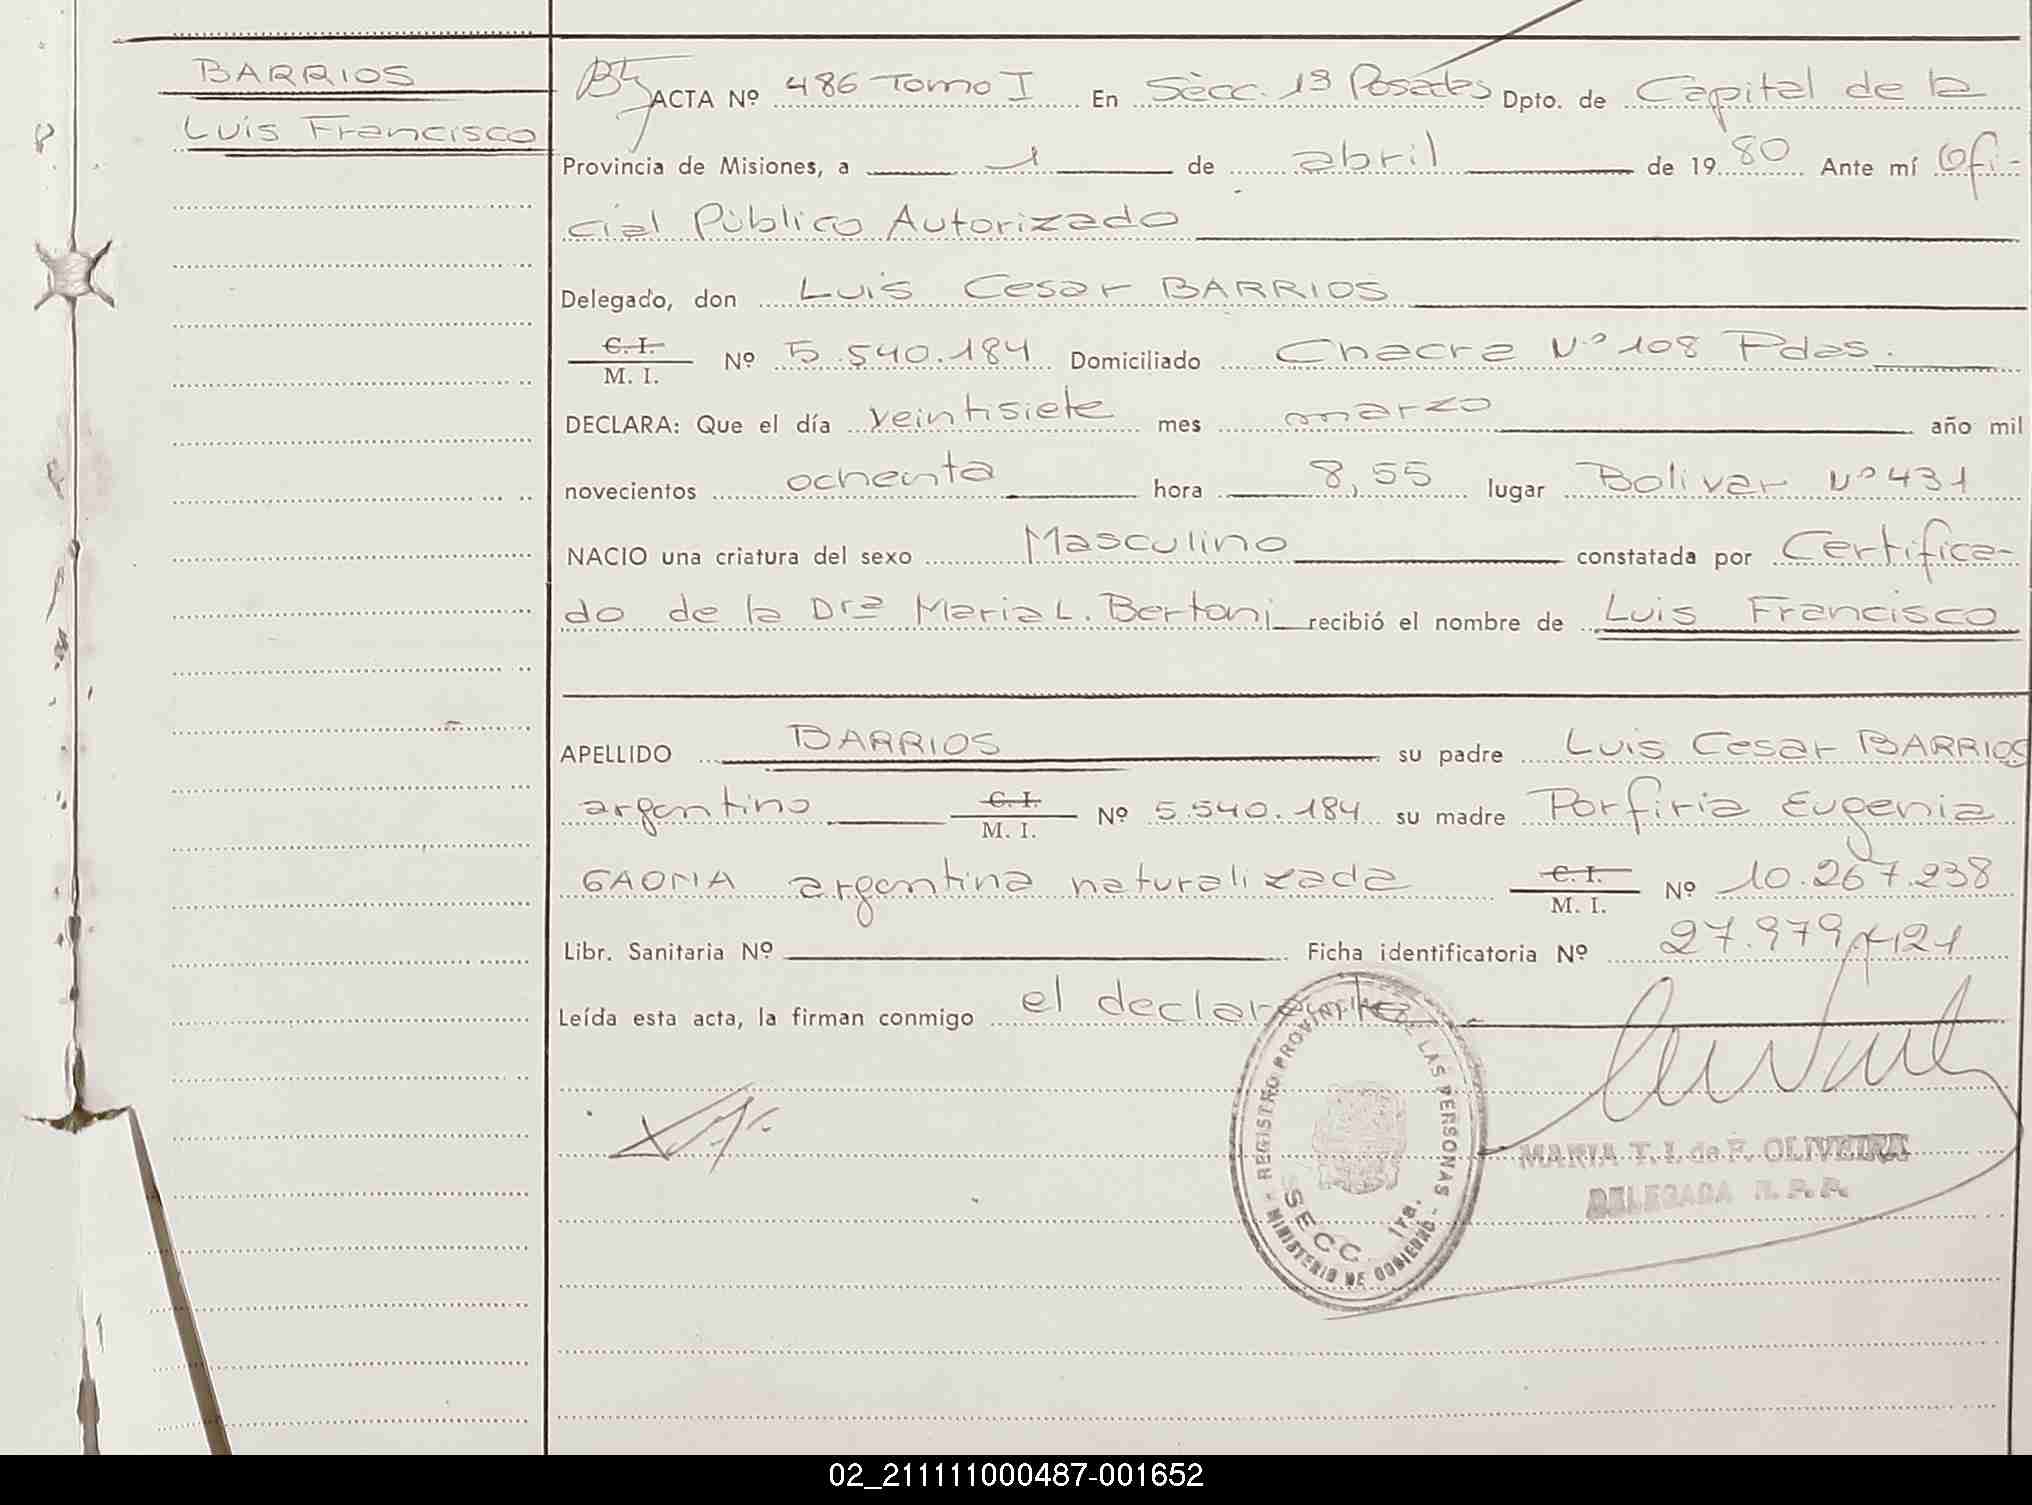 BARRIOS
Luis Francisco
ACTA Nº 486 Tomo I En Sècc. 1ª Posadas Dpto. de Capital de la
Provincia de Misiones, a 1 de abril de 1980 Ante mí Ofi-
cial Público Autorizado
Delegado, don Luis Cesar BARRIOS
C. I.
M. I. Nº 5.540.184 Domiciliado Chacra Nº 108 Pdas.
DECLARA: Que el día veintisiete mes marzo año mil
novecientos ochenta hora 8,55 lugar Bolivar Nº 431
NACIO una criatura del sexo Masculino constatada por Certifica-
do de la Drª Maria L. Bertoni recibió el nombre de Luis Francisco
APELLIDO BARRIOS su padre Luis Cesar BARRIOS
argentino C. I. M. I. Nº 5.540.184 su madre Porfiria Eugenia
GAONA argentina naturalizada C. I. M. I. Nº 10.267.238
Libr. Sanitaria Nº Ficha identificatoria Nº 27.979.121
Leída esta acta, la firman conmigo el declarante
REGISTRO PROVINCIAL DE LAS PERSONAS
MINISTERIO DE GOBIERNO
SECC. 1ra.
MARIA T. I. de F. OLIVEIRA
DELEGADA R. P. P.
02_211111000487-001652